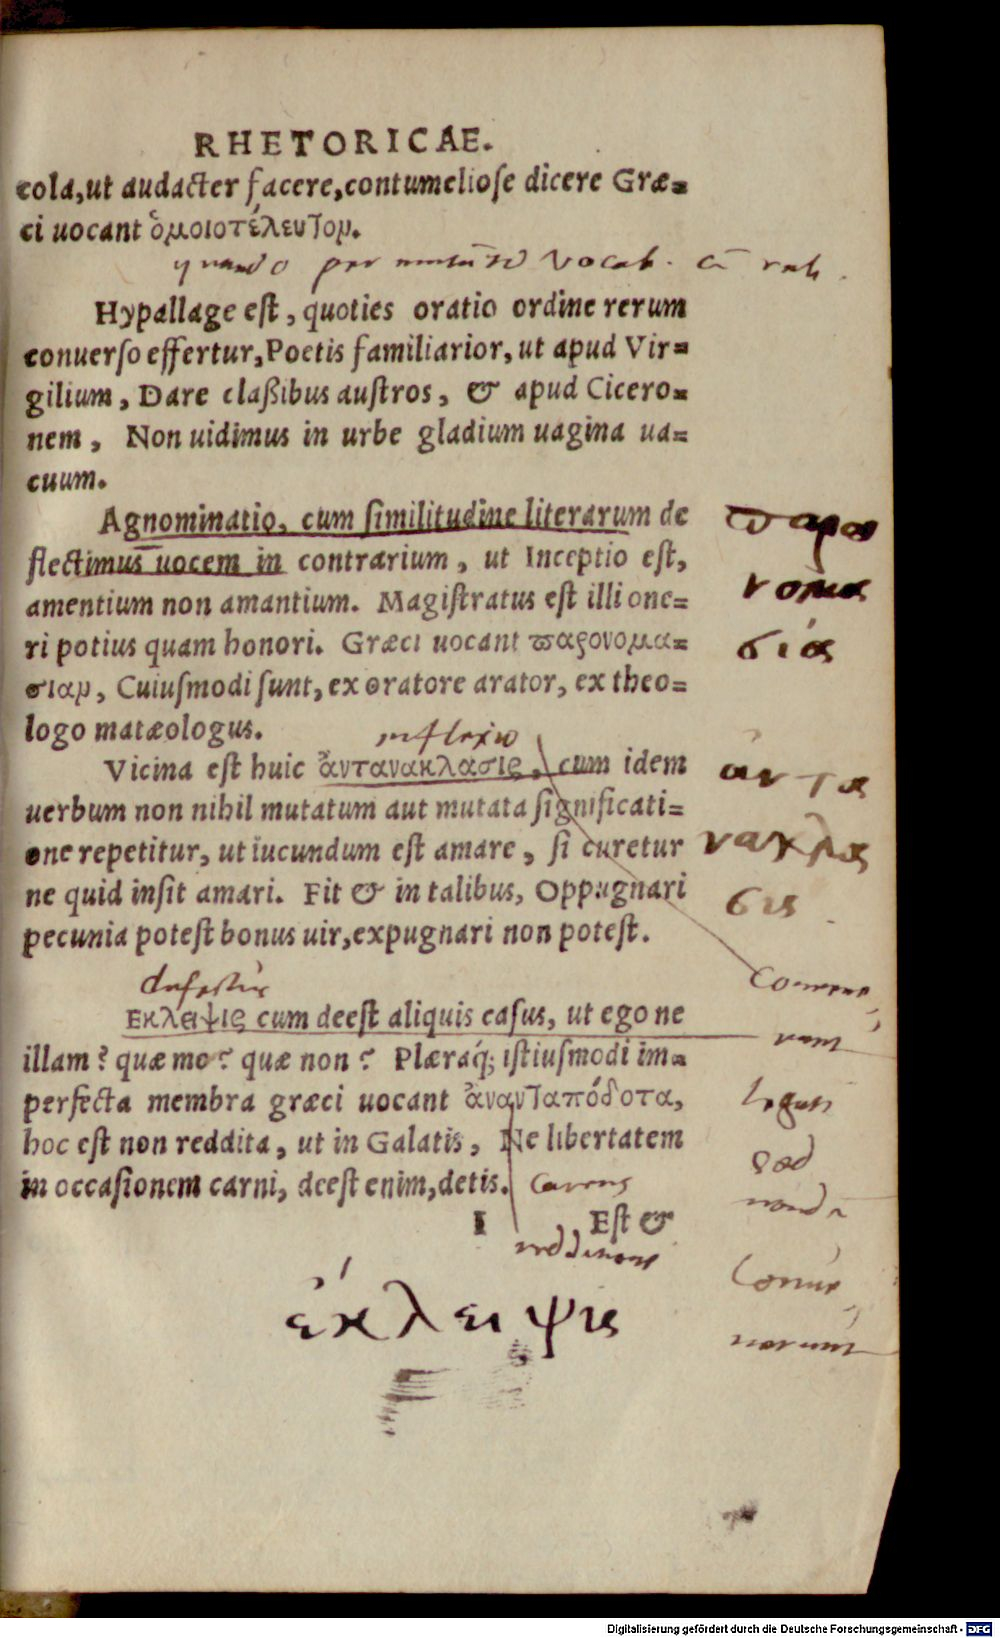 RHETORICAE.
cola, ut audacter facere, contumeliose dicere Græ=
ci uocant ὁμοιοτέλευτον.
quando per vocab.
Hypallage est, quoties oratio ordine rerum
conuerso effertur, Poetis familiarior, ut apud Vir=
gilium, Dare claßibus austros, & apud Cicero=
nem, Non uidimus in urbe gladium uagina ua=
cuum.
Agnominatio, cum similitudine literarum de
flectimus uocem in contrarium, ut Inceptio est,
amentium non amantium. Magistratus est illi one=
ri potius quam honori. Græci uocant παρονομα=
σιαν, Cuiusmodi sunt, ex oratore arator, ex theo=
logo matæologus.
παρο
νομα
σία
reflexio
Vicina est huic ἀντανακλασις, cum idem
uerbum non nihil mutatum aut mutata significati=
one repetitur, ut iucundum est amare, si curetur
ne quid insit amari. Fit & in talibus, Oppugnari
pecunia potest bonus uir, expugnari non potest.
ἀντα
νακλα
σις
defectus
Εκλειψις cum deest aliquis casus, ut ego ne
illam? quæ me? quæ non? Plæraq; istiusmodi im=
perfecta membra græci uocant ἀνανταπόδοτα,
hoc est non reddita, ut in Galatis, Ne libertatem
in occasionem carni, deest enim, detis.
carens
I Est &
redditione
legati
ἔκλειψις
Digitalisierung gefördert durch die Deutsche Forschungsgemeinschaft - DFG